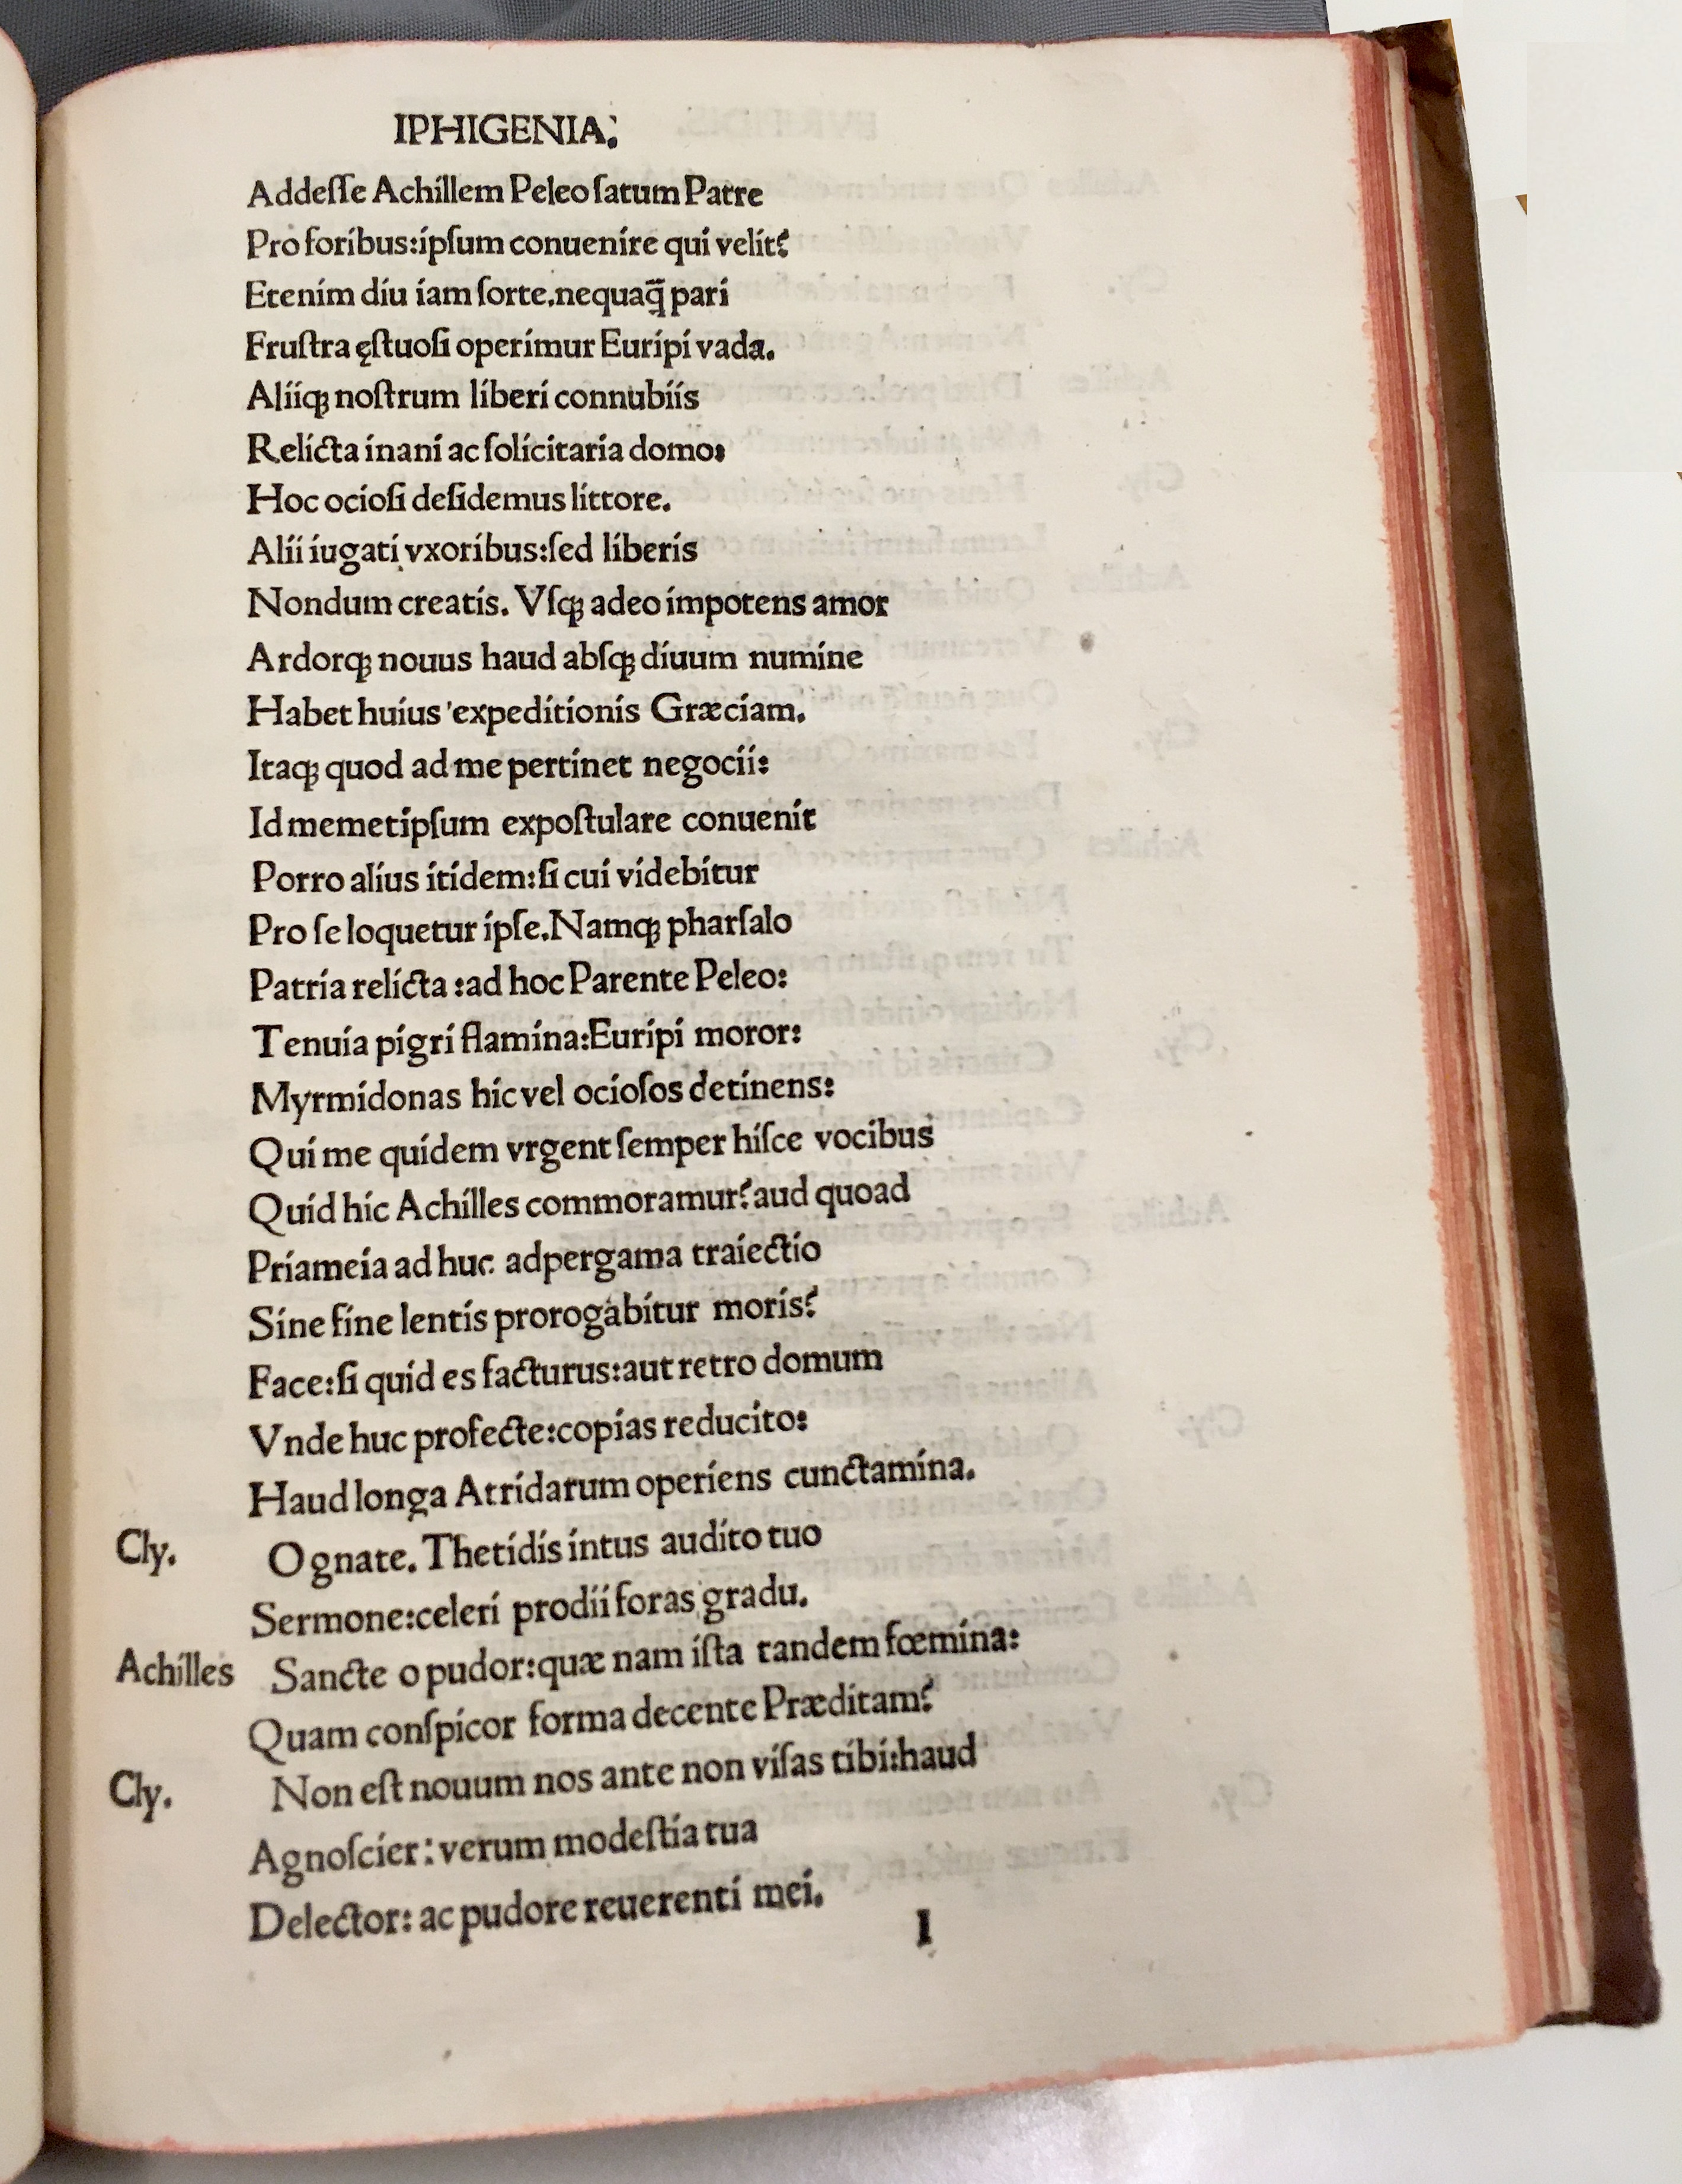 IPHIGENIA.
Addeſſe Achillem Peleo ſatum Patre
Pro foribus:ipſum conuenire qui velit?
Etenim diu iam ſorte.nequaq̃ pari
Fruſtra ęſtuoſi operimur Euripi vada.
Aliiqꝫ noſtrum liberi connubiis
Relicta inani ac ſolicitaria domo:
Hoc ocioſi deſidemus littore.
Alii iugati vxoribus:ſed liberis
Nondum creatis. Vſqꝫ adeo impotens amor
Ardorqꝫ nouus haud abſqꝫ diuum numine
Habet huius expeditionis Græciam.
Itaqꝫ quod ad me pertinet negocii:
Id memetipſum expoſtulare conuenit
Porro alius itidem:ſi cui videbitur
Pro ſe loquetur ipſe.Namqꝫ pharſalo
Patria relicta :ad hoc Parente Peleo:
Tenuia pigri flamina:Euripi moror:
Myrmidonas hic vel ocioſos detinens:
Qui me quidem vrgent ſemper hiſce vocibus
Quid hic Achilles commoramur?aud quoad
Priameia ad huc adpergama traiectio
Sine fine lentis prorogabitur moris?
Face:ſi quid es facturus:aut retro domum
Vnde huc profecte:copias reducito:
Haud longa Atridarum operiens cunctamina.
Cly. O gnate. Thetidis intus audito tuo
Sermone:celeri prodii foras gradu.
Achilles Sancte o pudor:quæ nam iſta tandem fœmina:
Quam conſpicor forma decente Præditam?
Cly. Non eſt nouum nos ante non viſas tibi:haud
Agnoſcier: verum modeſtia tua
Delector: ac pudore reuerenti mei.
I